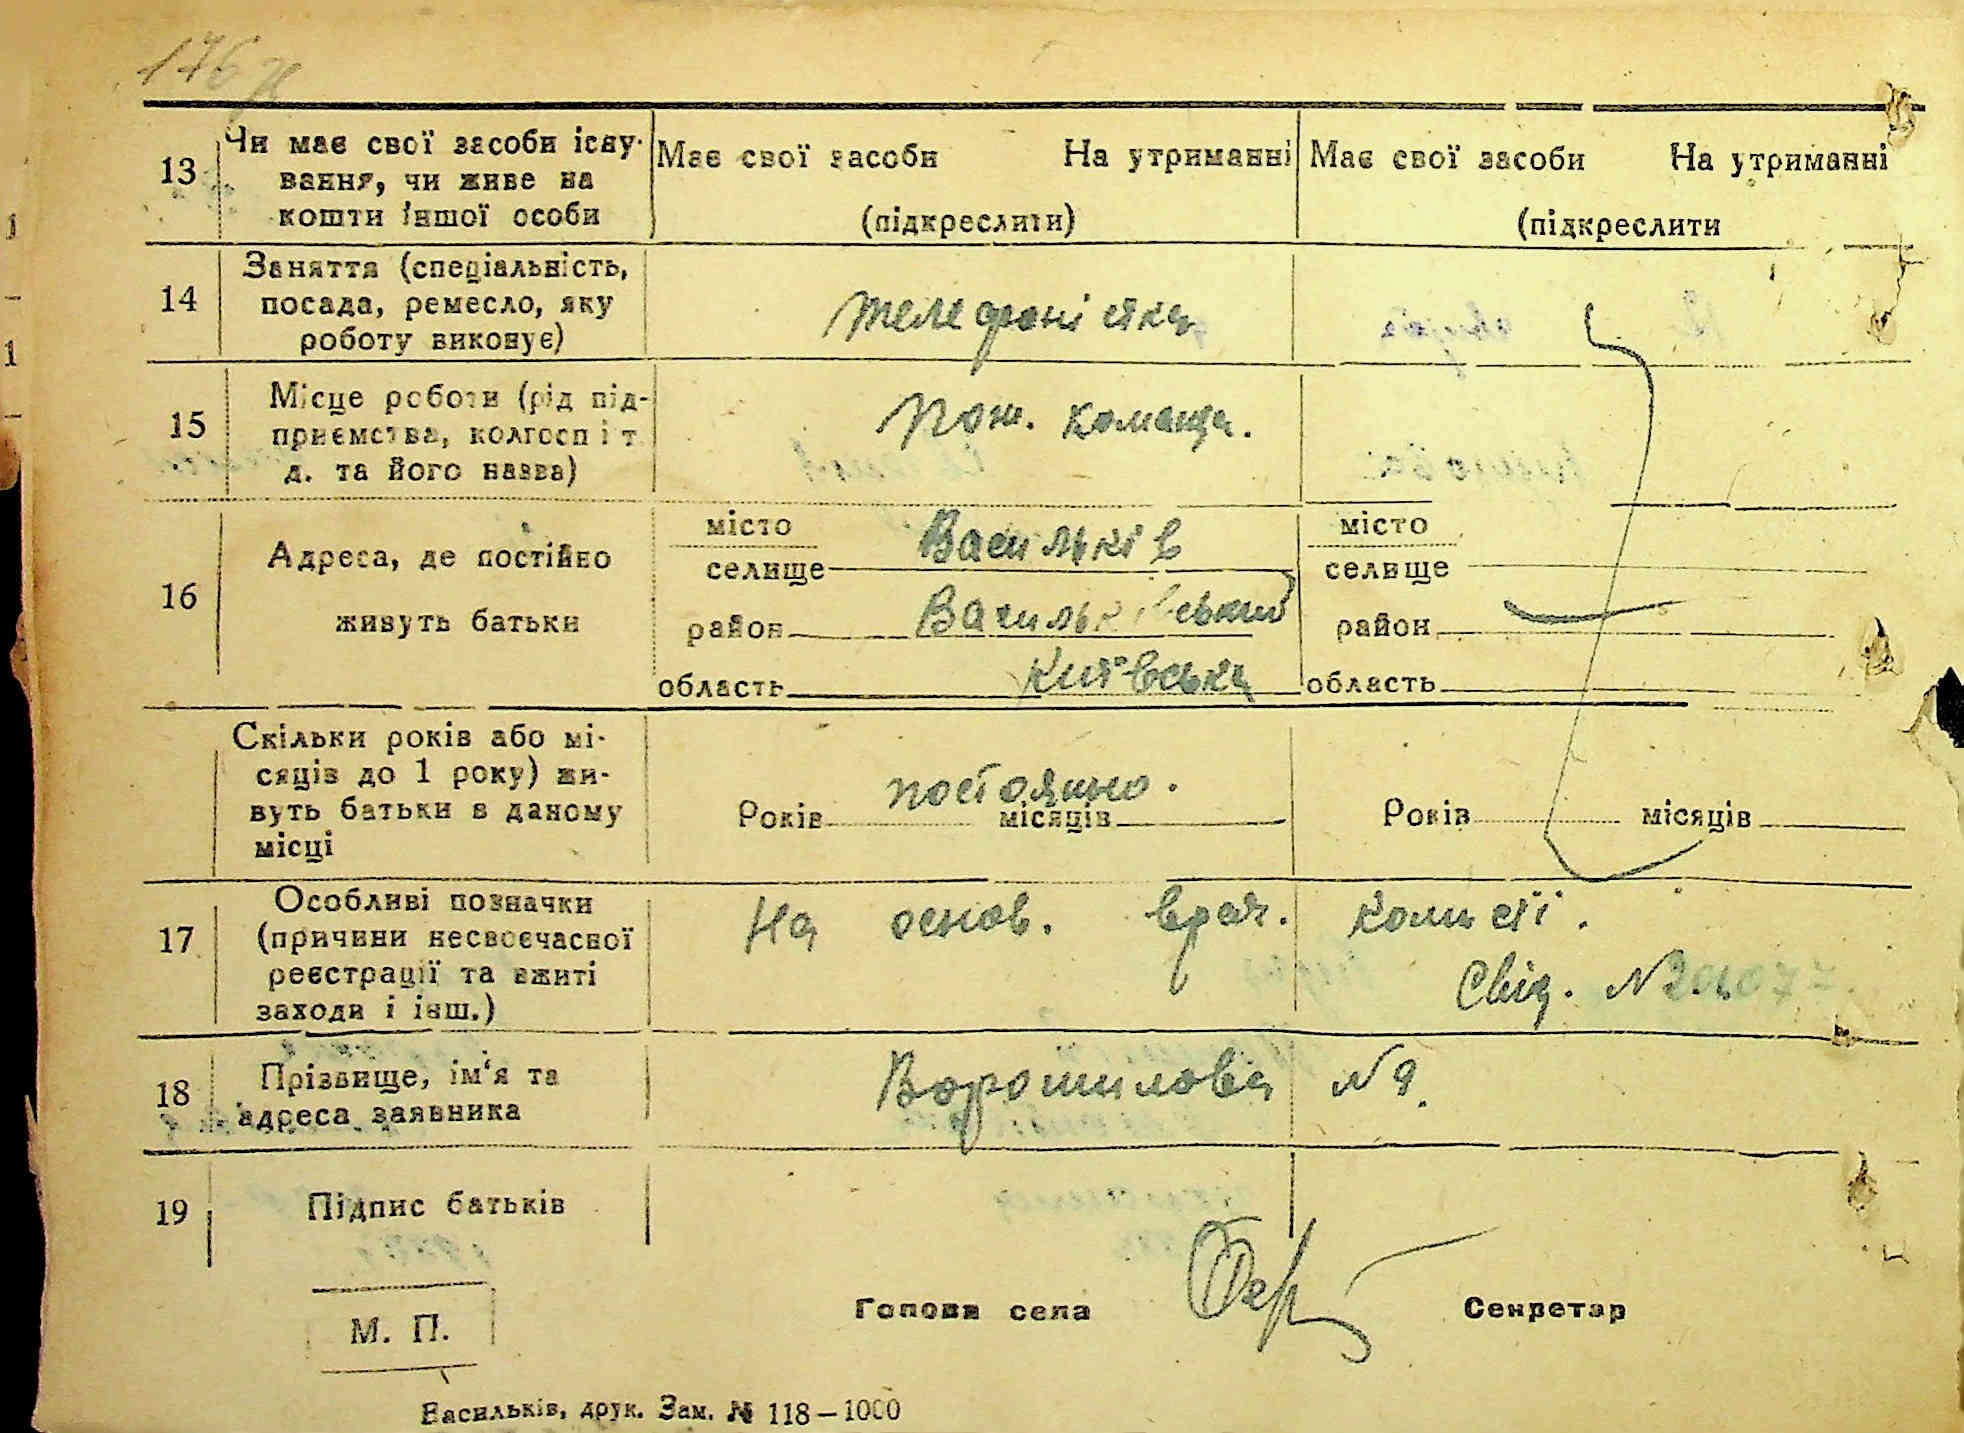 176
13 Чи має свої засоби існу- Має свої засоби На утриманні Має свої засоби На утриманні
вання, чи живе на
кошти іншої особи (підкреслити) (підкреслити
14 Заняття (спеціальність,
посада, ремесло, яку телефоністка
роботу виконує)
15 Місце роботи (рід під-
приємства, колгосп і т Пож. команда.
д. та його назва)
16 Адреса, де постійно
живуть батьки
місто Васильків місто
селище селище
район Васильківський район
область Київська область
Скільки років або мі-
сяців до 1 року) жи-
вуть батьки в даному постоянно.
Років місяців Років місяців
місці
17 Особливі позначки
(причини несвоєчасної На основ. врач. комісії.
реєстрації та вжиті
заходи і інш.) Свід. №
18 Прізвище, ім'я та
адреса заявника Ворошилова № 9.
19 Підпис батьків
М. П. Голова села Секретар
Васильків, друк. Зам. № 118–1000